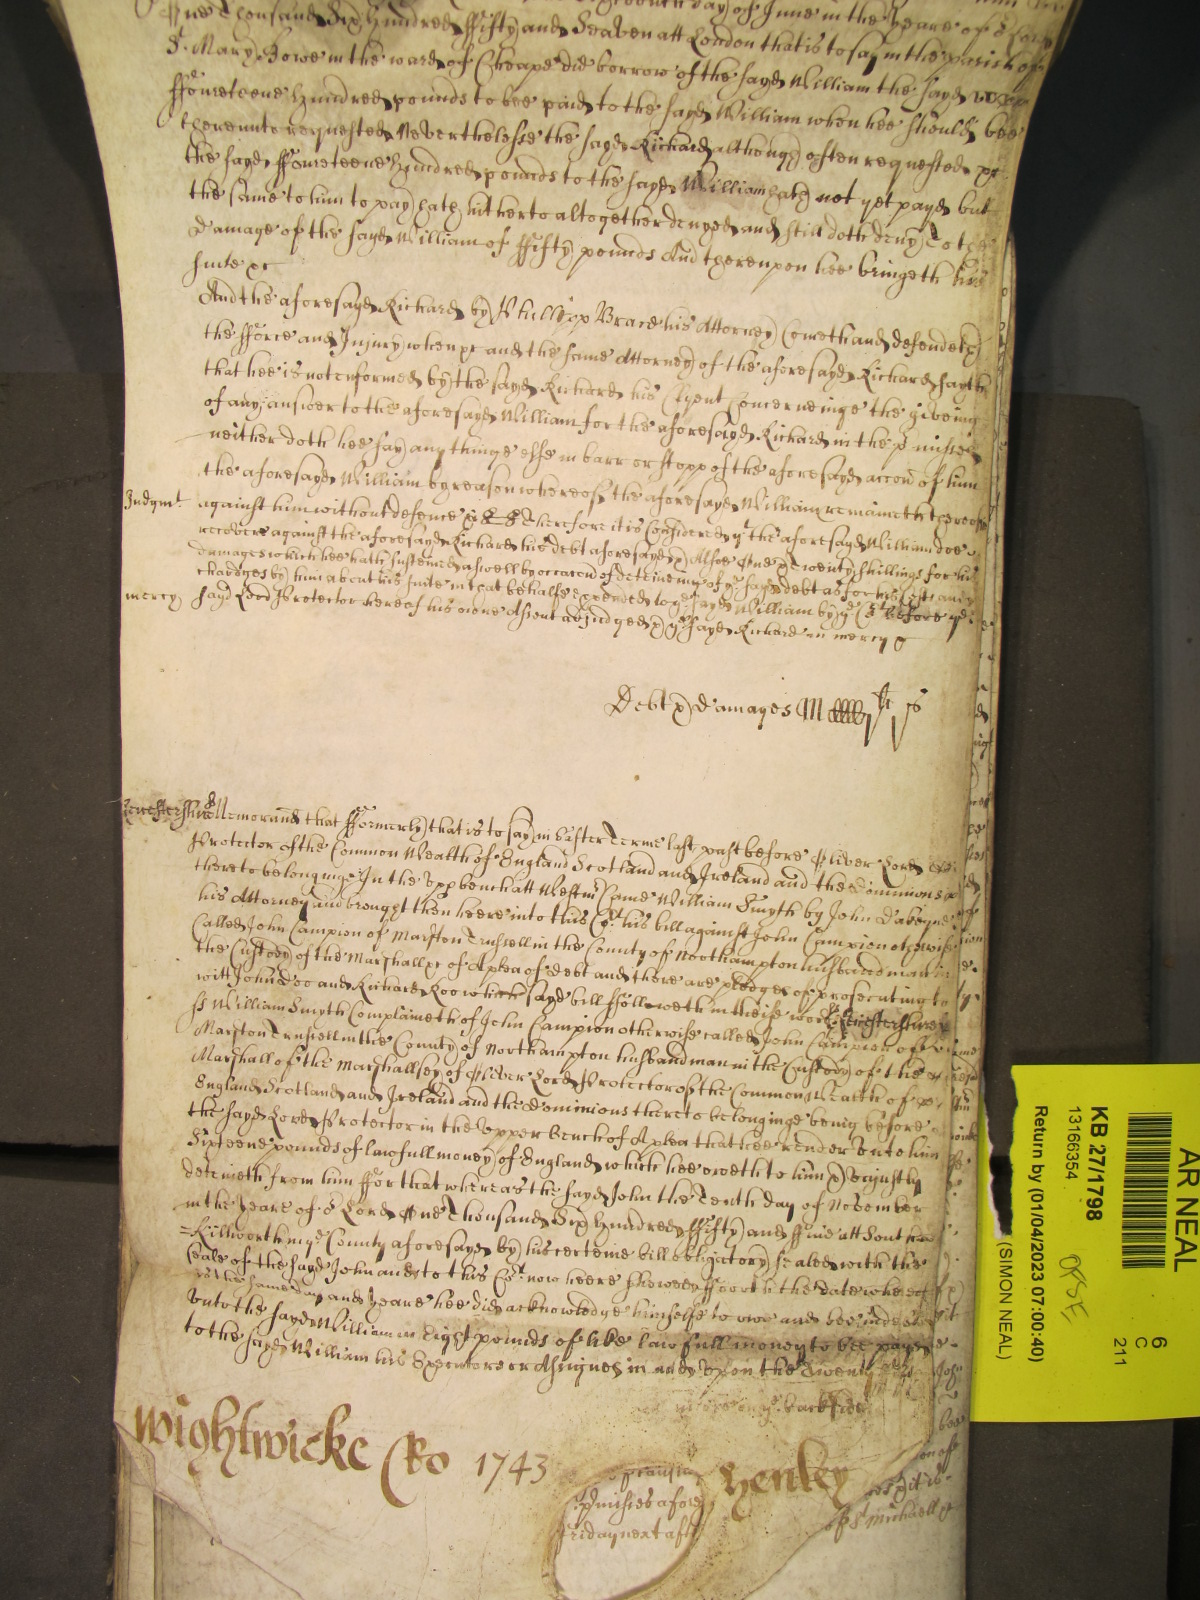 day of June in the yeare of oʳ Lord
One Thousand Six hundred ffifty and Seaven att London that is to say in the parish of
Sᵗ. Mary Bowe in the ward of Cheape did borrow of the sayd William the sayd
ffoureteene hundred pounds to bee paid to the sayd William when hee should bee
thereunto requested Neverthelesse the sayd Richard although often requested &c
the sayd ffoureteene hundred pounds to the sayd William hath not yet payd but
the same to him to pay hath hitherto altogether denyed and still doth deny To the
Damage of the sayd William of ffifty pounds And thereupon hee bringeth his
suite &c
And the aforesayd Richard by Phillipp Brace his Attorney Cometh and defendeth
the fforce and Injury when &c and the same Attorney of the aforesayd Richard sayth
that hee is not enformed by the sayd Richard his Clyent Concerneinge the giveing
of any answer to the aforesayd William for the aforesayd Richard in the pʳmisses
neither doth hee say any thinge else in barr or stopp of the aforesayd accon of him
the aforesayd William by reason whereof the aforesayd William remaineth thereof
Judgmᵗ. against him without defence &c Therefore it is Considered yᵗ the aforesayd William doe
recover against the aforesayd Richard his debt aforesayd & Alsoe One & Twenty shillings for his
damages which hee hath susteined aswell by occacon of deteineing of yᵉ sayd debt as for his Costs and
chardges by him about his suite in that behalfe expended to yᵉ sayd William by yᵉ Coᵗ before yᵉ
mercy sayd Lord Protector here of his owne Assent adjudged & yᵉ sayd Richard in mercy &c
Debt & damages M CCCC j li j s
Leicestershire ss Memorand that fformerly that is to say in Easter Terme last past before Oliver Lord
Protector of the Common Wealth of England Scotland and Ireland and the Dominions
thereto belonginge In the Uppbench att Westmʳ Came William Smyth by John Dabeyne
his Attorney and brought then heere into this Coʳᵗ his bill against John Campion otherwise
Called John Campion of Marston Trussell in the County of Northampton husbandman in
the Custody of the Marshall &c of A plea of debt and there are pledges of prosecuting to
witt John Doo and Richard Roo which sayd bill ffolloweth in theise words Leicestershire
ss William Smyth Complaineth of John Campion otherwise called John Campion of
Marston Trussell in the County of Northampton husbandman in the Custody of the
Marshall of the Marshallsey of Oliver Lord Protector of the Common Wealth of
England Scotland and Ireland and the Dominions thereto belonginge being before
the sayd Lord Protector in the Upper Bench of A plea that hee render unto him
Sixteene pounds of lawfull money of England which hee oweth to him & Unjustly
deteineth from him ffor that whereas the sayd John the Tenth day of November
in the yeare of oʳ Lord One Thousand Six hundred ffifty and ffive att South
=Killworth in yᵉ County aforesayd by his certeine bill obligatory sealed with the
seale of the sayd John and to this Coʳᵗ now heere shewed fforth the date whereof
is the same day and yeare hee did acknowledge himselfe to owe and bee indebted
unto the sayd William in Eight pounds of like lawfull money to bee payd
to the sayd William his Executors or Assignes in and upon the Twenty
yᵉ backside
Wightwicke Ro 1743 Henley
pʳmisses afore
friday next aft
of Sᵗ Michaell
AR NEAL
KB 27/1798
13166354
Return by (01/04/2023 07:00:40)
(SIMON NEAL)
6
C
211